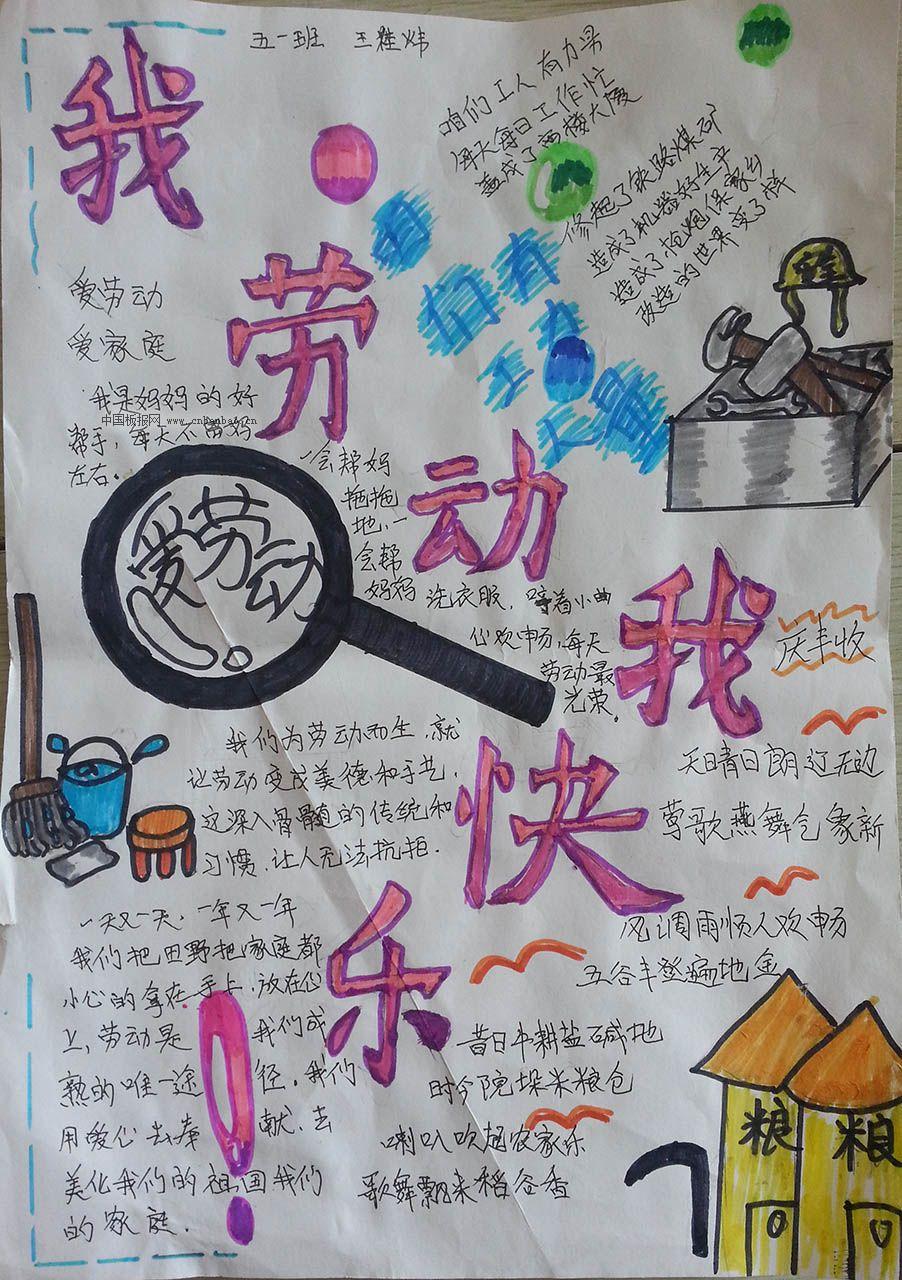 五一班 王
我劳动我快乐!
咱们工人有力另
每天每日工作忙
盖成了高楼大厦
修起了铁路煤矿
造成了机器好生产
造成了枪炮保家乡
改造的世界变了样
咱们有
工人
力量
爱劳动
爱家庭
我是妈妈的好
帮手,每天不离妈
左右。
中国板报网 www.cnbanbao.cn
一会帮妈
拖拖
地,一
会帮
妈妈洗衣服,哼着小曲
心欢畅,每天
劳动最
光荣。
爱劳动
安全
庆丰收
天晴日朗近无边
莺歌燕舞气象新
风调雨顺人欢畅
五谷丰登遍地金
昔日牛耕盐碱地
时今院垛米粮仓
喇叭吹起农家乐
歌舞飘来稻谷香
我们为劳动而生,就
让劳动变成美德和手艺,
这深入骨髓的传统和
习惯,让人无法抗拒.
一天又一天,一年又一年
我们把田野把家庭都
小心的拿在手上,放在心
上,劳动是我们成
熟的唯一途径,我们
用爱心去奉献,去
美化我们的祖国我们
的家庭.
粮
粮